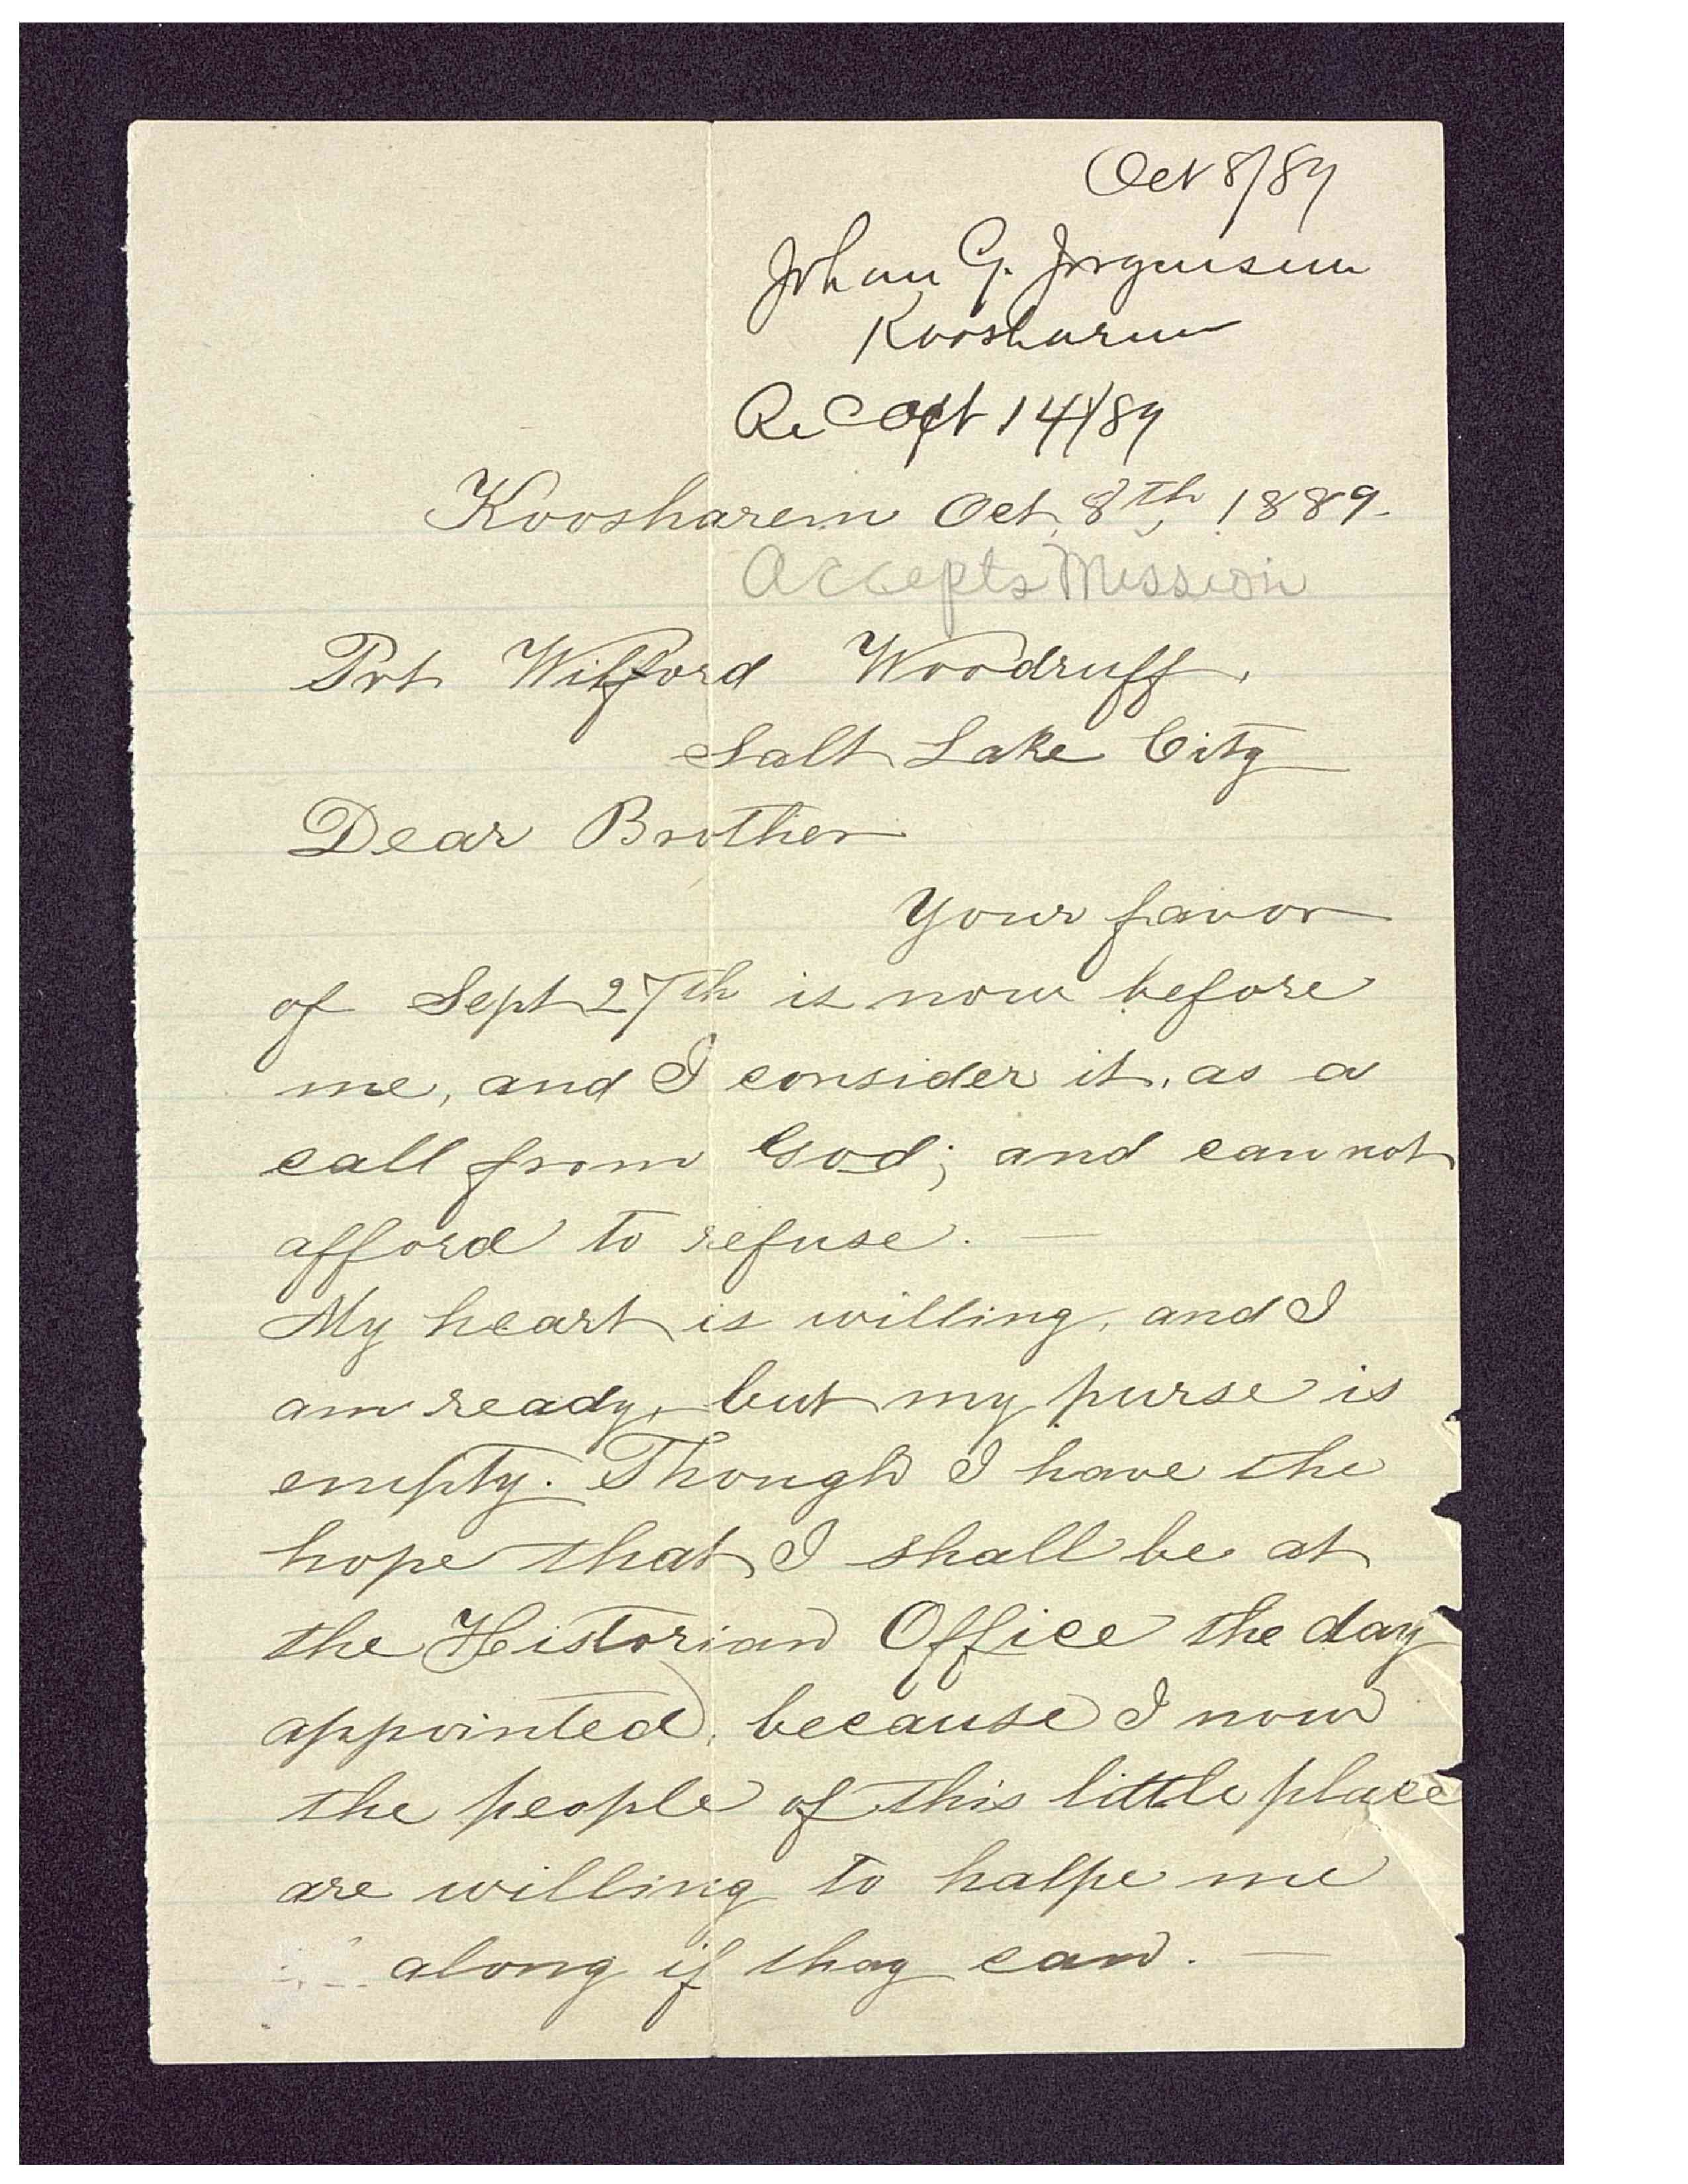 Oct 8/89
Johan G. Jorgensen
Koosharem
Rec Oct 14/89
Koosharem Oct. 8th, 1889.
Accepts Mission
Prt Wilford Woodruff.
Salt Lake City
Dear Brother
Your favor
of Sept 27th is now before
me, and I consider it, as a
call from God; and can not
afford to refuse. —
My heart is willing, and I
am ready, but my purse is
empty. Though I have the
hope that I shall be at
the Historian Office the day
appointed, because I now
the people of this little place
are willing to halpe me
along if thay can. —